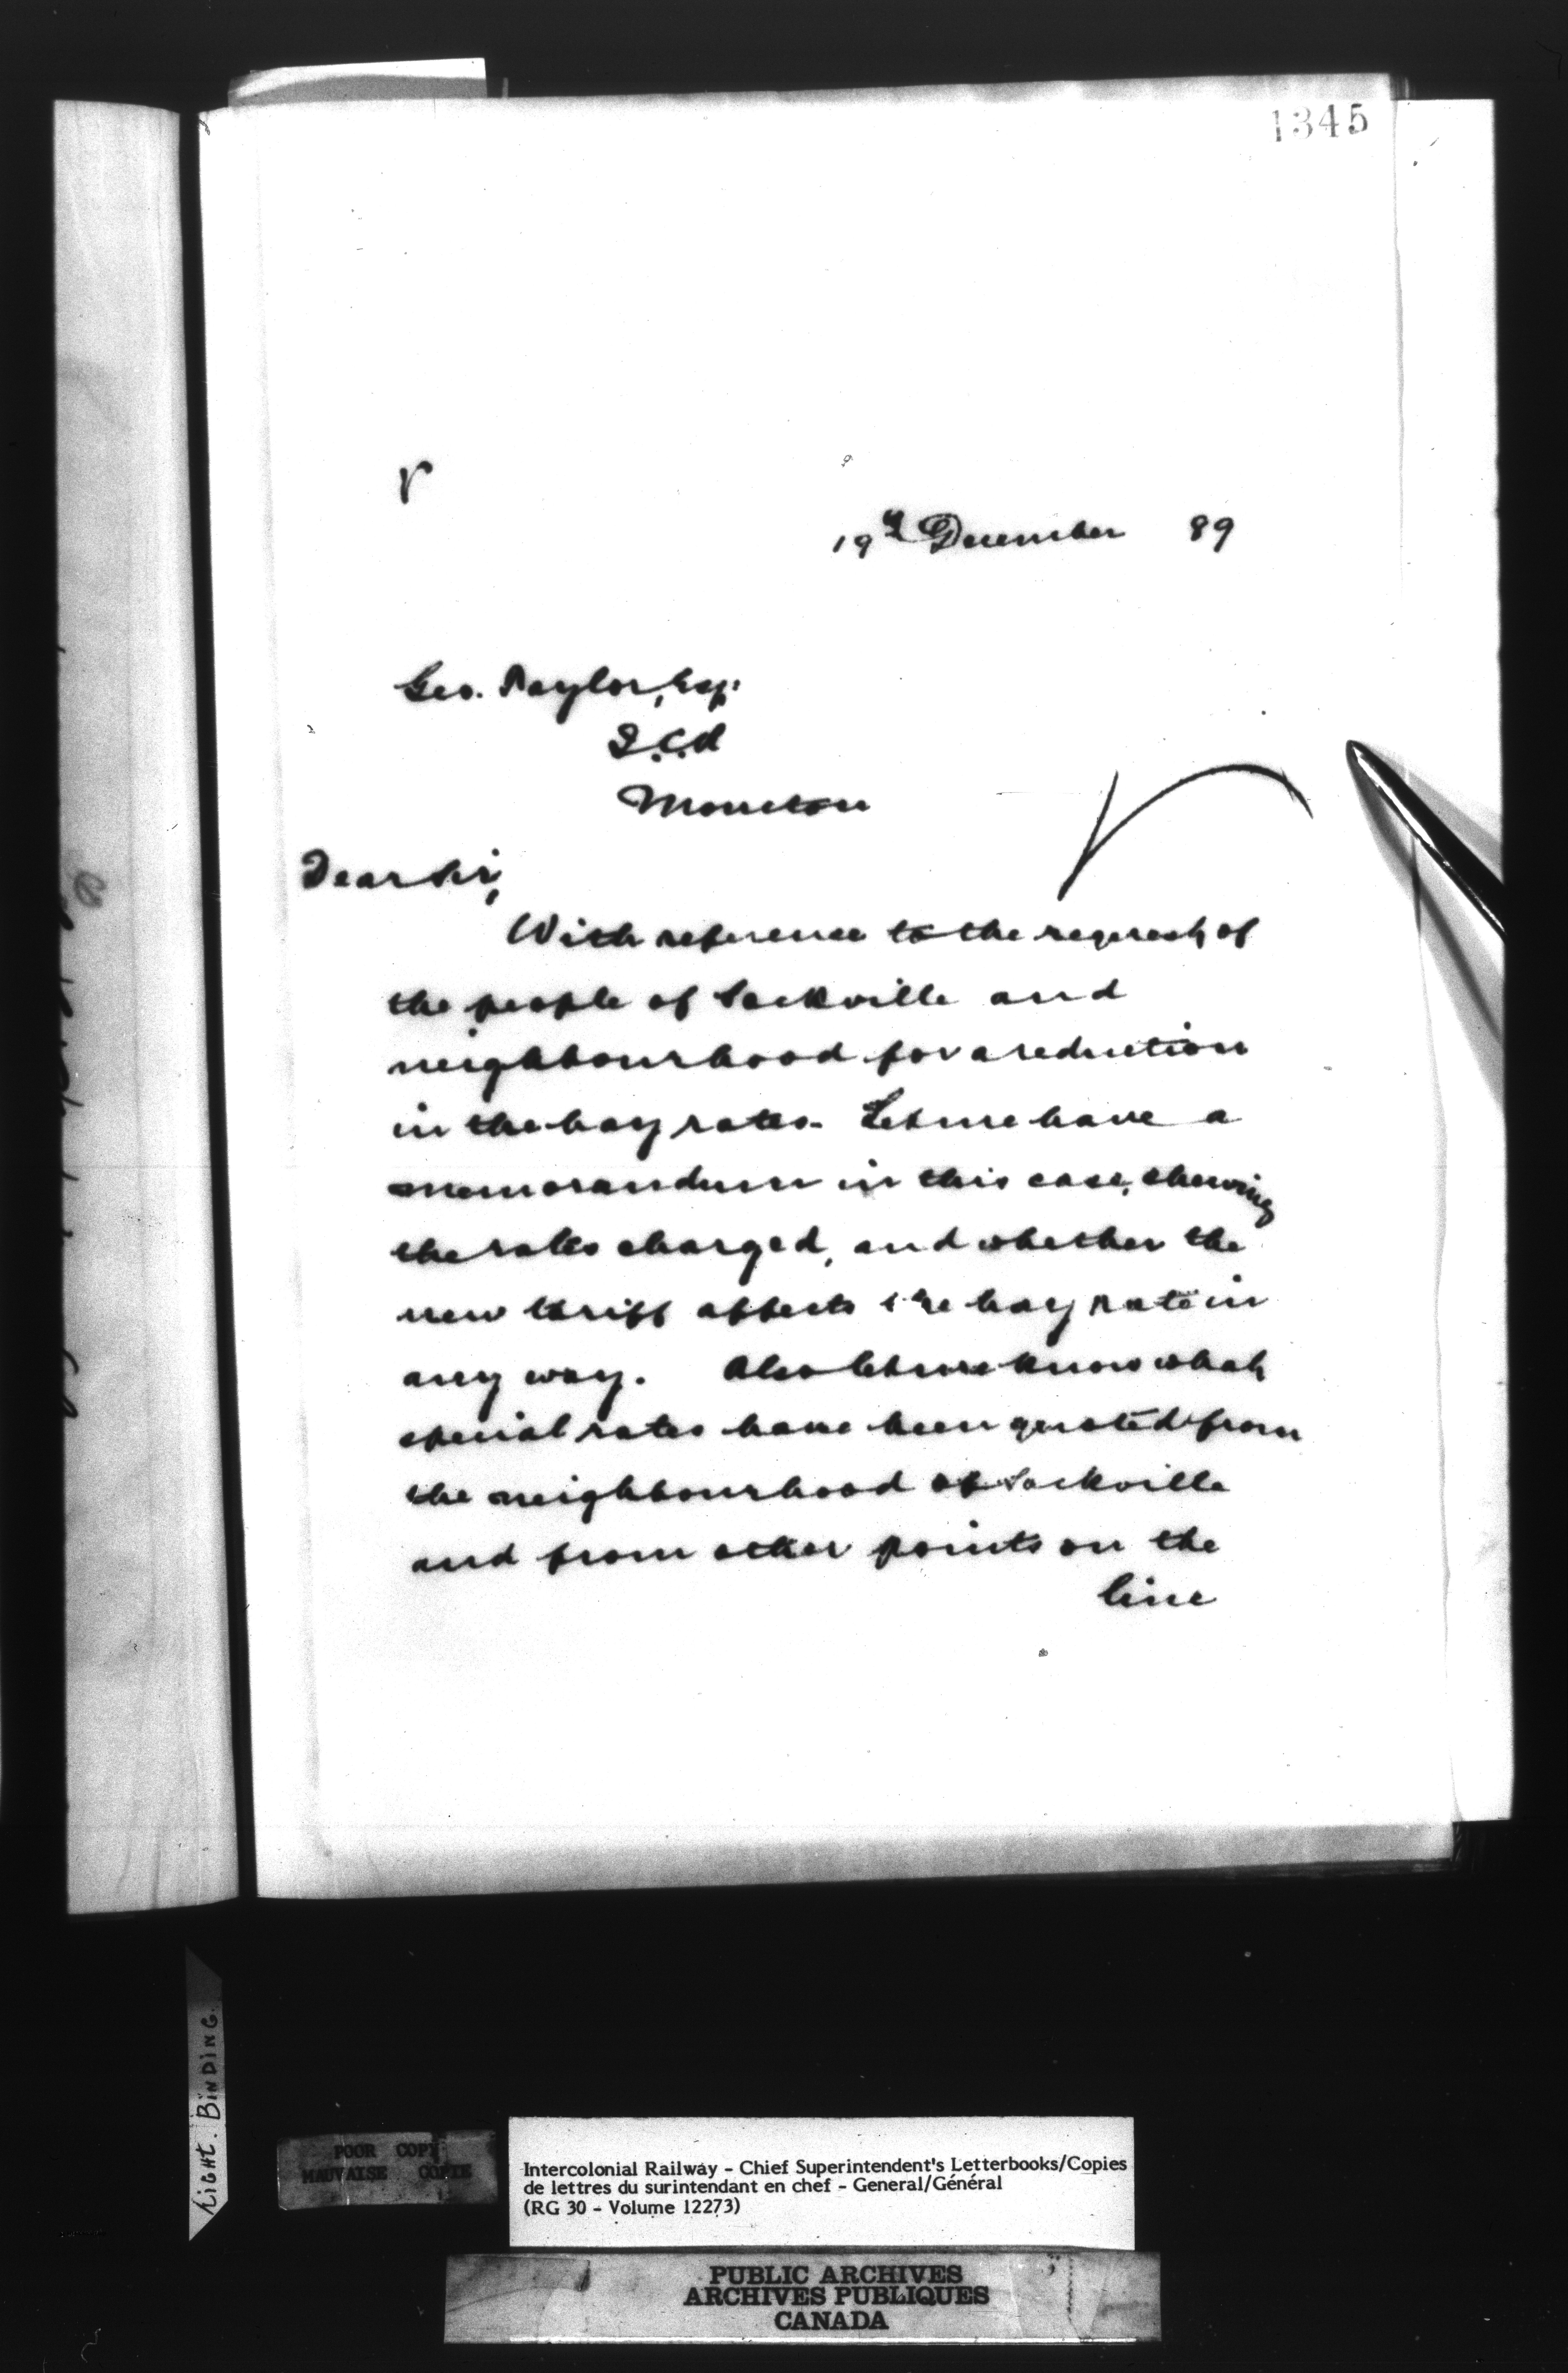 1345
19th December 89
Geo. Taylor, Esq:
Moncton
Dear Sir,
With reference to the request of
the people of Sackville and
neighbourhood for a reduction
in the hay rates. Let me have a
memorandum in this case, shewing
the rates charged, and whether the
new tariff affects the hay rate in
any way. Also let me know what
special rates have been quoted from
the neighbourhood of Sackville
and from other points on the
line
Tight. BINDING.
POOR COPY
MAUVAISE COPIE
Intercolonial Railway - Chief Superintendent's Letterbooks/Copies
de lettres du surintendant en chef - General/Général
(RG 30 - Volume 12273)
PUBLIC ARCHIVES
ARCHIVES PUBLIQUES
CANADA